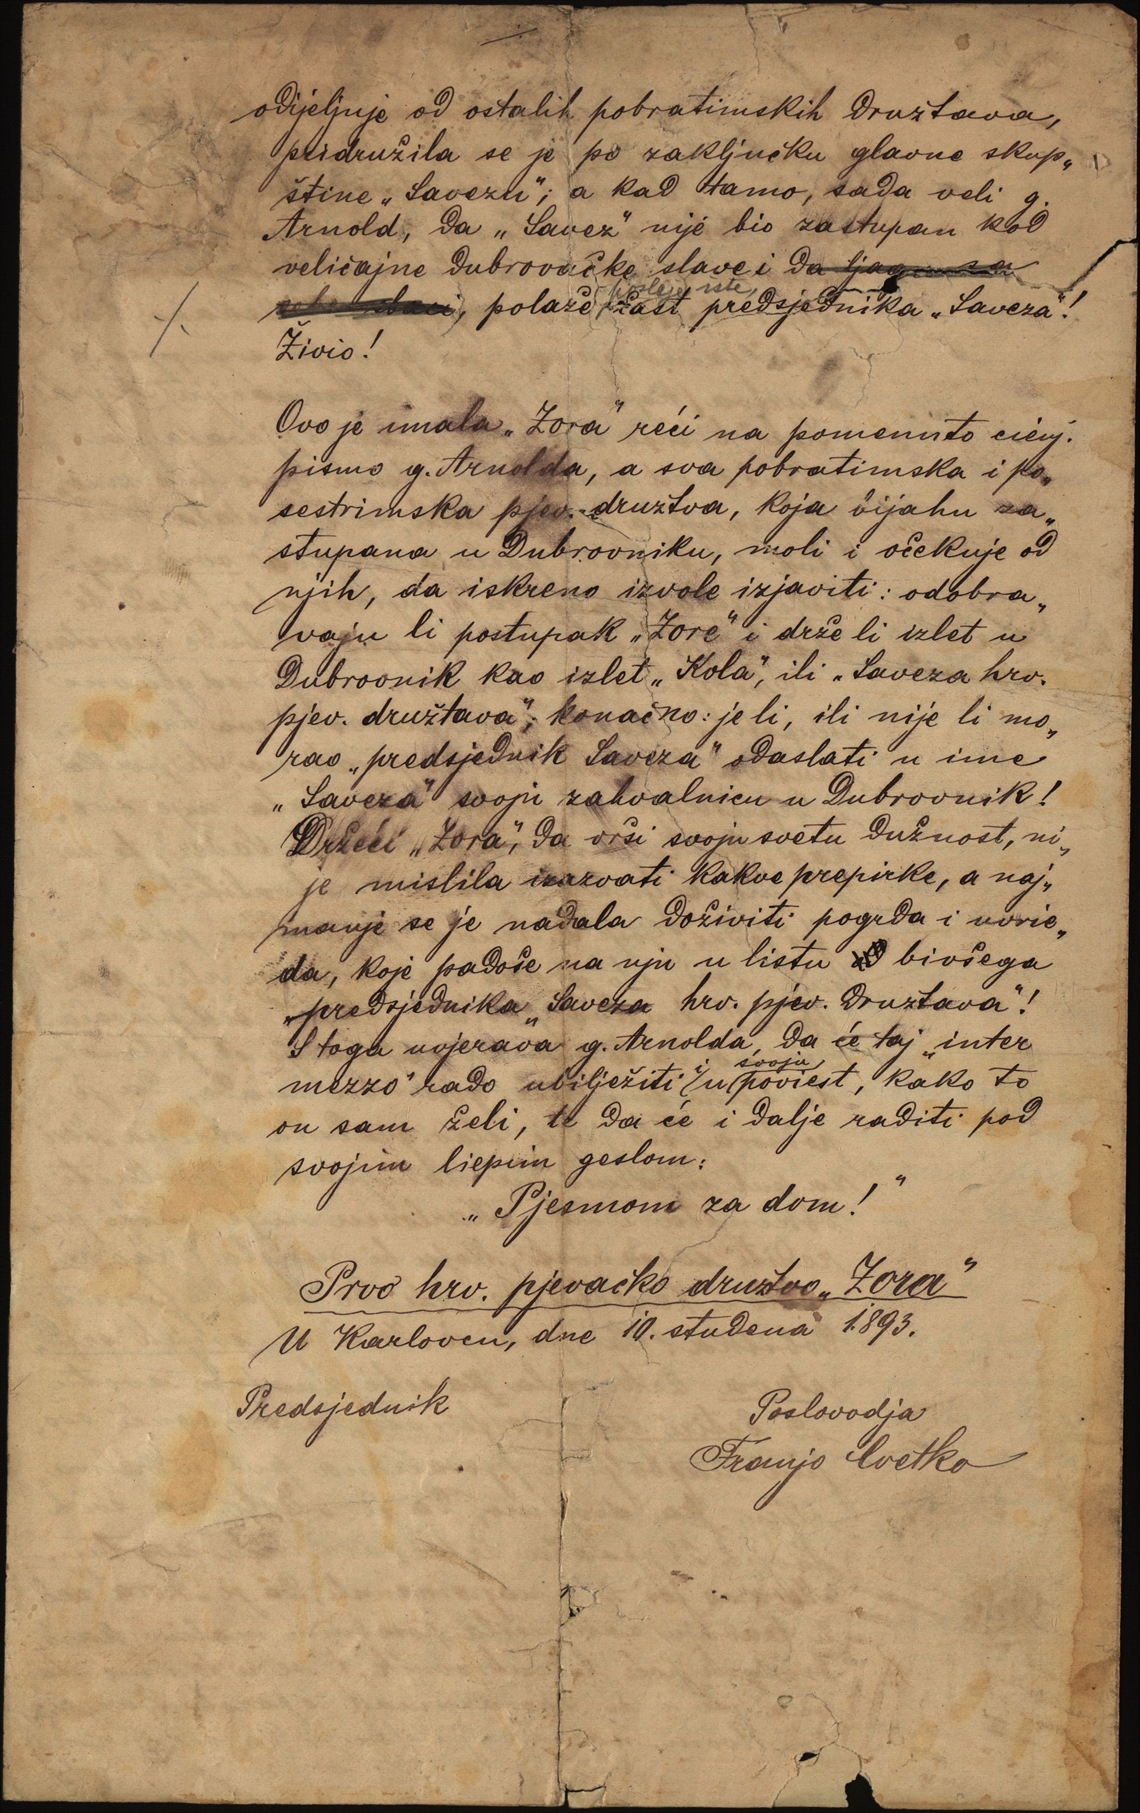 odijeljuje od ostalih pobratimskih družtava,
pridružila se je po zaključku glavne skup„
štine „Savezu“; a kad tamo, sada veli g.
Arnold, da „Savez“ nije bio zastupan kod
veličajne dubrovačke slave i da ljaga sa
, polaže poslije iste čast predsjednika „Saveza“!
Živio!
Ovo je imala „Zora“ reći na pomenuto cienj.
pismo g. Arnolda, a sva pobratimska i po„
sestrimska pjev. družtva, koja bijahu za„
stupana u Dubrovniku, moli i očekuje od
njih, da iskreno izvole izjaviti: odobra„
vaju li postupak „Zore“ i drže li izlet u
Dubrovnik kao izlet „Kola“, ili „Saveza hrv.
pjev. družtava“; konačno: je li, ili nije li mo„
rao „predsjednik Saveza“ odaslati u ime
„Saveza“ svoju zahvalnicu u Dubrovnik!
Držeći „Zora“, da vrši svoju svetu dužnost, ni„
je mislila izazvati kakve prepirke, a naj„
manje se je nadala doživiti pogrda i uvrie„
da, koje padoše na nju u listu bivšega
„predsjednika „Saveza hrv. pjev. družtava“!
Stoga uvjerava g. Arnolda, da će taj „inter
mezzo“ rado ubilježiti i u svoju poviest, kako to
on sam želi, te da će i dalje raditi pod
svojim liepim geslom:
„Pjesmom za dom!“
Prvo hrv. pjevačko družtvo „Zora“
U Karlovcu, dne 10. studena 1893.
Predsjednik Poslovodja
Franjo Cvetko